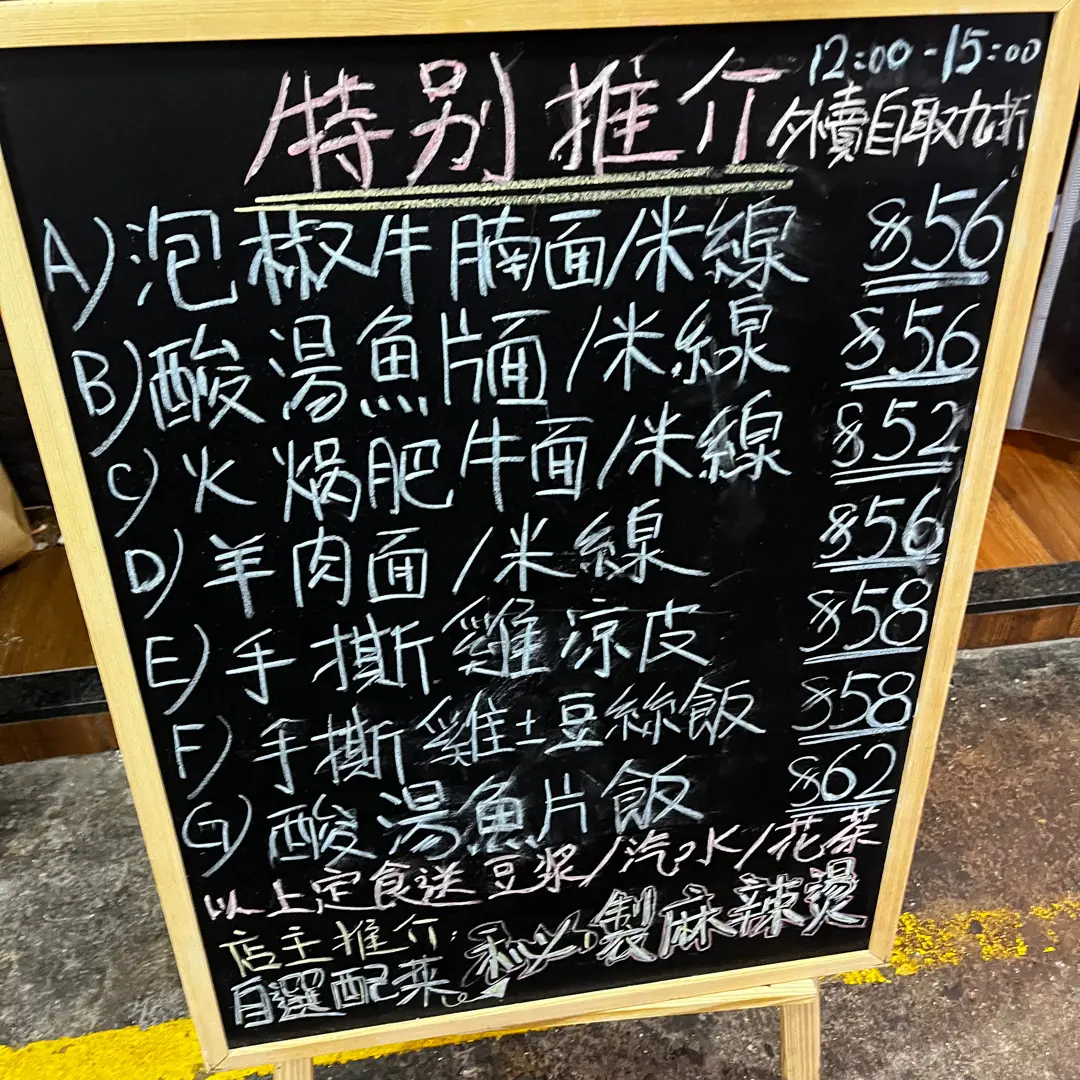 特别推介
12:00-15:00
外賣自取九折
A)泡椒牛腩面/米線 $56
B)酸湯魚片面/米線 $56
C)火焗肥牛面/米線 $52
D)羊肉面/米線 $56
E)手撕雞涼皮 $58
F)手撕雞土豆絲飯 $58
G)酸湯魚片飯 $62
以上定食送豆漿/汽水/花茶
店主推介:
自選配菜 秘製麻辣燙